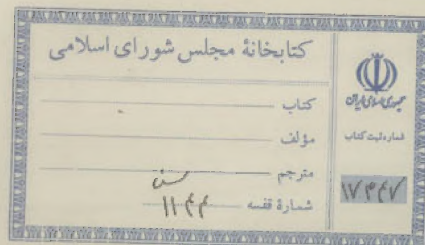 کتابخانهٔ مجلس شورای اسلامی
کتاب
مؤلف
مترجم
شمارهٔ قفسه
جمهوری اسلامی ایران
شماره ثبت کتاب
۱۷۳۴۷